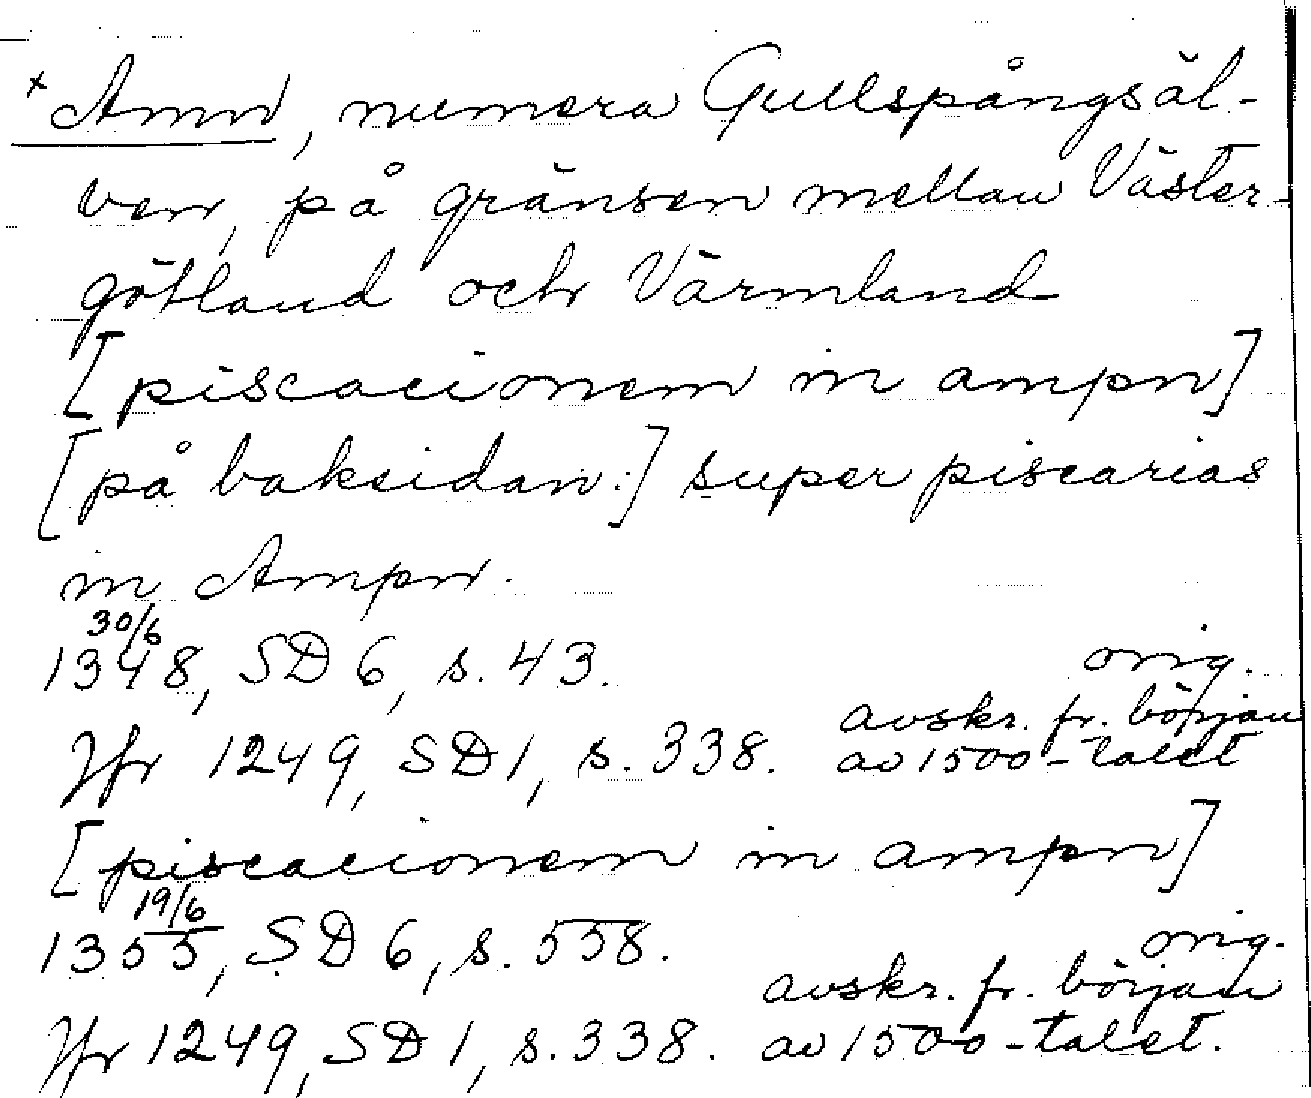 × Amn, numera Gullspångsäl-
ven, på gränsen mellan Väster-
götland och Värmland
[piscacionem in ampn]
[på baksidan:] super piscarias
in Ampn.
30/6
1348, SD 6, s. 43. orig.
Jfr 1249, SD 1, s. 338. avskr. fr. början
av 1500-talet
[piscacionem in ampn]
19/6
1355, SD 6, s. 558. orig.
avskr. fr. början
Jfr 1249, SD 1, s. 338. av 1500-talet.